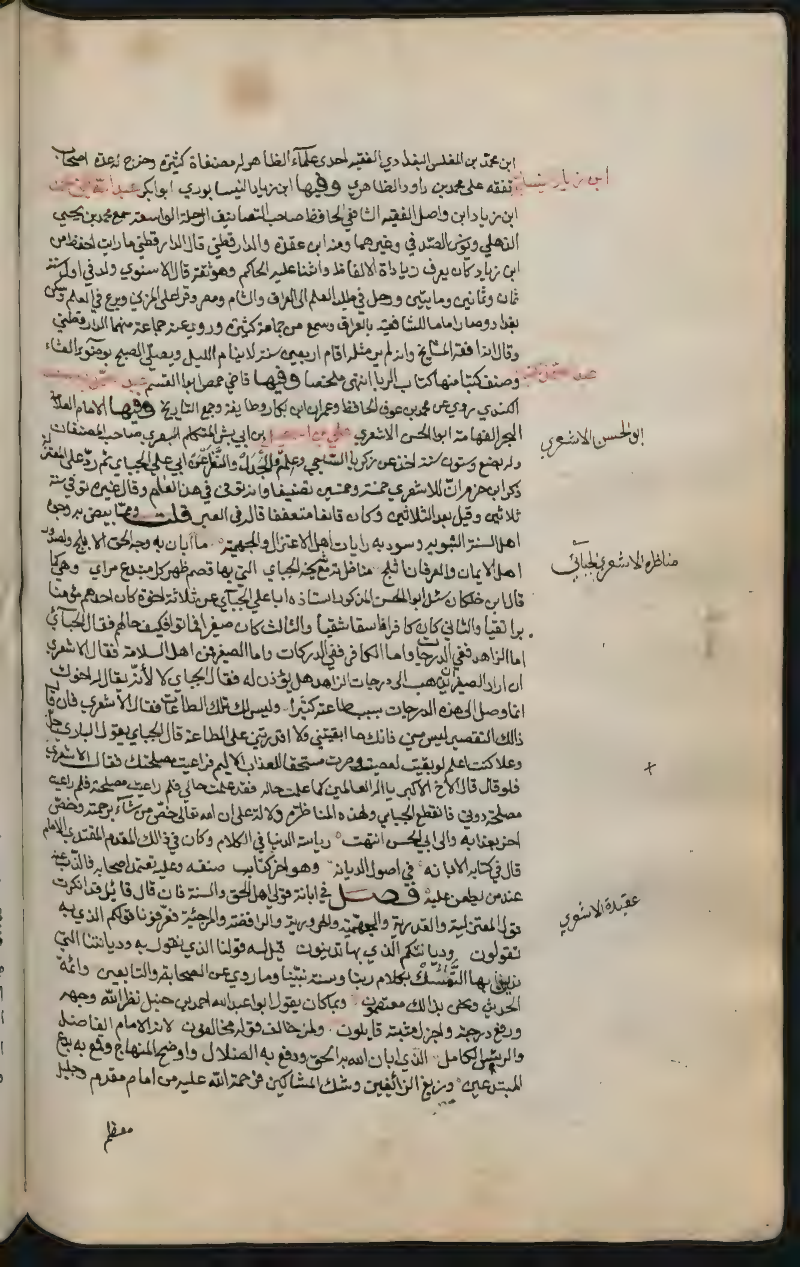 ابن محمد بن المغلس البغدادي الفقيه احدى علماء الظاهر له مصنفاة كثيرة وخرج له عدة اصحاب
ابن زياد نيسا
تفقه على محمد بن داود الظاهري وفيها ابن زياد النيسابوري ابوابكر عبد الله بن محمد
ابن زياد ابن واصل الفقيه الشافعي الحافظ صاحب التصانيف والرحلة الواسعة سمع محمد بن يحيى
الذهلي ويونس الصدفي وغيرهما وعنه ابن عقدة والدارقطني قال الدارقطني ما رايت احفظ من
ابن زياد كان يعرف زيادة الالفاظ واثنا عليه الحاكم وهو ثقة قال الاسنوي ولد في اول سنة
ثمان وثمانين ومايتين ورحل في طلب العلم الى العراق والشام ومصر وقرا على المزني وبرع في العلم وسكن
بغداد وصار اماما للشافعية بالعراق وسمع من جماعة كثيرة وروي عنه جماعة منهم الدارقطني
وقال انه افقه المشايخ وانه لم ير مثله اقام اربعين سنة لا ينام الليل ويصلي الصبح بوضوء العشاء
وصنف كتبا منها كتاب الربا انتهى ملخصا وفيها قاضي حمص ابوا القسم عبد
الكندي روي عن محمد بن عوف الحافظ وعمران ابن بكار وطايفة وجمع التاريخ وفيها الامام العلامة
البحر الفهامة ابوا الحسن الاشعري علي بن اسمعيل بن ابي بشر المتكلم البصري صاحب المصنفات
ابو الحسن الاشعري
وله بضع وستون سنة اخذ عن زكريا الساجي وعلم والجدل والنظر عن ابي علي الجباي ثم رد على المعتزلة
ذكر ابن حزم ان للاشعري خمسة وخمسين تصنيفا وانه توفى في هذا العام وقال غيره توفي سنة
ثلاثين وقيل بعد الثلاثين وكان قانعا متعففا قاله في العبر قلت ومما بيض به وجوه
اهل السنة النبوية وسود به رايات اهل الاعتزال والجهمية ما ابان به وجه الحق الابلج ولصدور
اهل الايمان والعرفان اثلج مناظرته مع شيخه الجباي التي بها قصم ظهر كل مبتدع مراي وهي كما
مناظرة الاشعري للجبائي
قال ابن خلكان سئل ابوا الحسن المذكور استاذه ابا علي الجبآي عن ثلاثة اخوة كان احدهم مؤمنا
برا تقيا والثاني كان كافرا فاسقا شقيا والثالث كان صغيرا فماتوا فكيف حالهم فقال الجبآئ
اما الزاهد ففي الدرجات واما الكافر ففي الدركات واما الصغير فمن اهل السلامة فقال الاشعري
ان اراد الصغير ان يذهب الى درجات الزاهد هل يؤذن له فقال الجباي لا لانه يقال له اخوك
انما وصل الى هذه الدرجات بسبب طاعته كثيرا وليس لك تلك الطاعات فقال الاشعري فان قال
ذالك التقصير ليس مني فانك ما ابقيتني ولا اقدرتني على الطاعة قال الجباي يقول الباري جل
وعلا كنت اعلم لو بقيت لعصيت وصرت مستحقا للعذاب الاليم فراعيت مصلحتك فقال الاشعري
فلو قال قال الاخ الاكبر يا اله العالمين كما علمت حاله فقد علمت حالي فلم راعيت مصلحته فلم راعيت
مصلحته دوني فانقطع الجباي ولهذه المناظرة دلالة على ان الله تعالى خص من شاء برحمته وخص
اخر بعذابه والى ابي الحسن انتهت رياسة الدنيا في الكلام وكان في ذالك المقدم المقتدي الامام
قال في كتابه الابانه في اصول الديانه وهو اخر كتاب صنفه وعليه يعتمد اصحابه في الذب عنه
عند من يطعن عليه فصل في ابانة قول اهل الحق والسنة فان قال قائل قد انكرت
قول المعتزلة والقدرية والجهمية والحرورية والرافضة والمرجئة فعرفونا قولكم الذي به
عقيدة الاشعري
تقولون وديانتكم الذي بها تدينون قيل له قولنا الذي نقول به وديانتنا التي
ندين بها التمسك بكلام ربنا وسنة نبينا وما روي عن الصحابة والتابعين وائمة
الحديث ونحن بذالك معتصمون وبما كان يقول ابوا عبد الله احمد بن حنبل نظر الله وجهه
ورفع درجته واجزل مثوبته قايلون ولمن خالف قوله مخالفون لانه الامام الفاضل
والرئيس الكامل الذي ابان الله به الحق ودفع به الضلال واوضح المنهاج وقمع به بدع
المبتدعين وزيغ الزائغين وشك المشاكين فرحمة الله عليه من امام مقدم وجليل
معظم